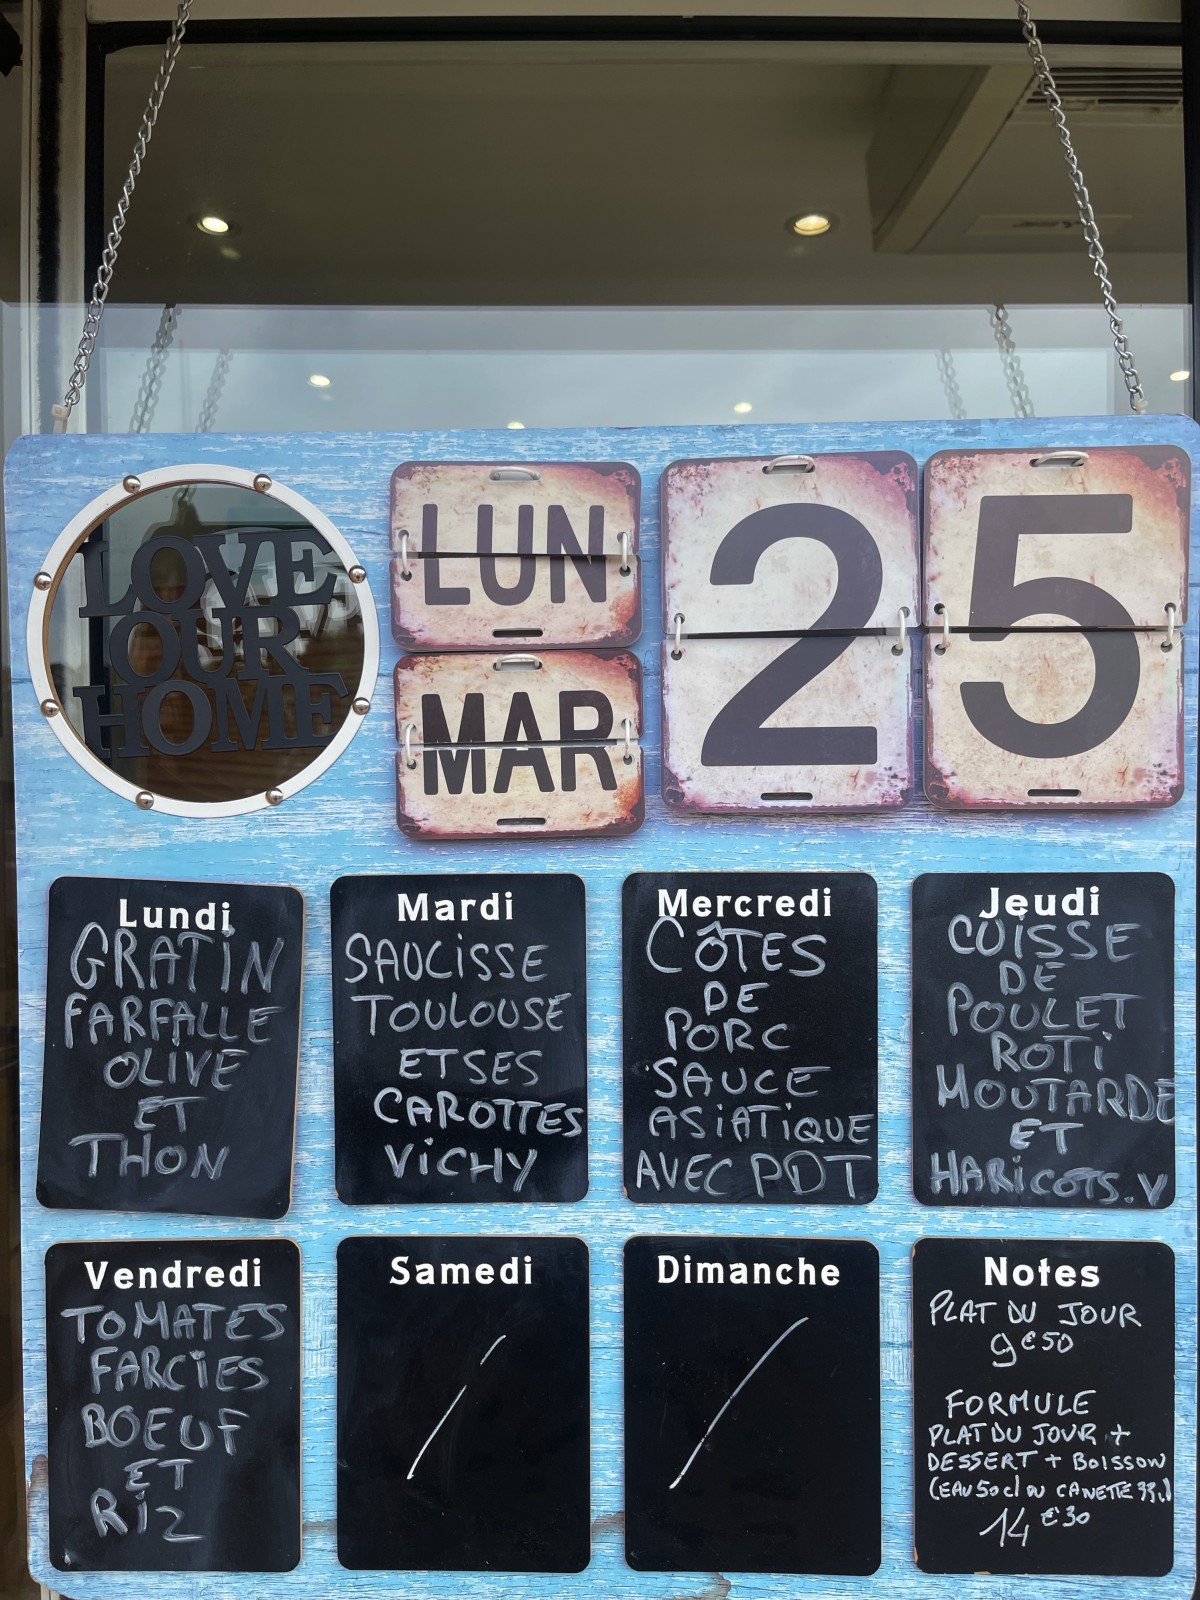 LOVE
OUR
HOME
LUN
MAR
25
Lundi
GRATIN
FARFALLE
OLIVE
ET
THON
Mardi
SAUCISSE
TOULOUSE
ET SES
CAROTTES
VICHY
Mercredi
CÔTES
DE
PORC
SAUCE
ASIATIQUE
AVEC PDT
Jeudi
CUISSE
DE
POULET
ROTI
MOUTARDE
ET
HARICOTS.V
Vendredi
TOMATES
FARCIES
BOEUF
ET
RIZ
Samedi
/
Dimanche
/
Notes
PLAT DU JOUR
9€50
FORMULE
PLAT DU JOUR +
DESSERT + BOISSON
(EAU 50cl OU CANETTE 33cl)
14€30